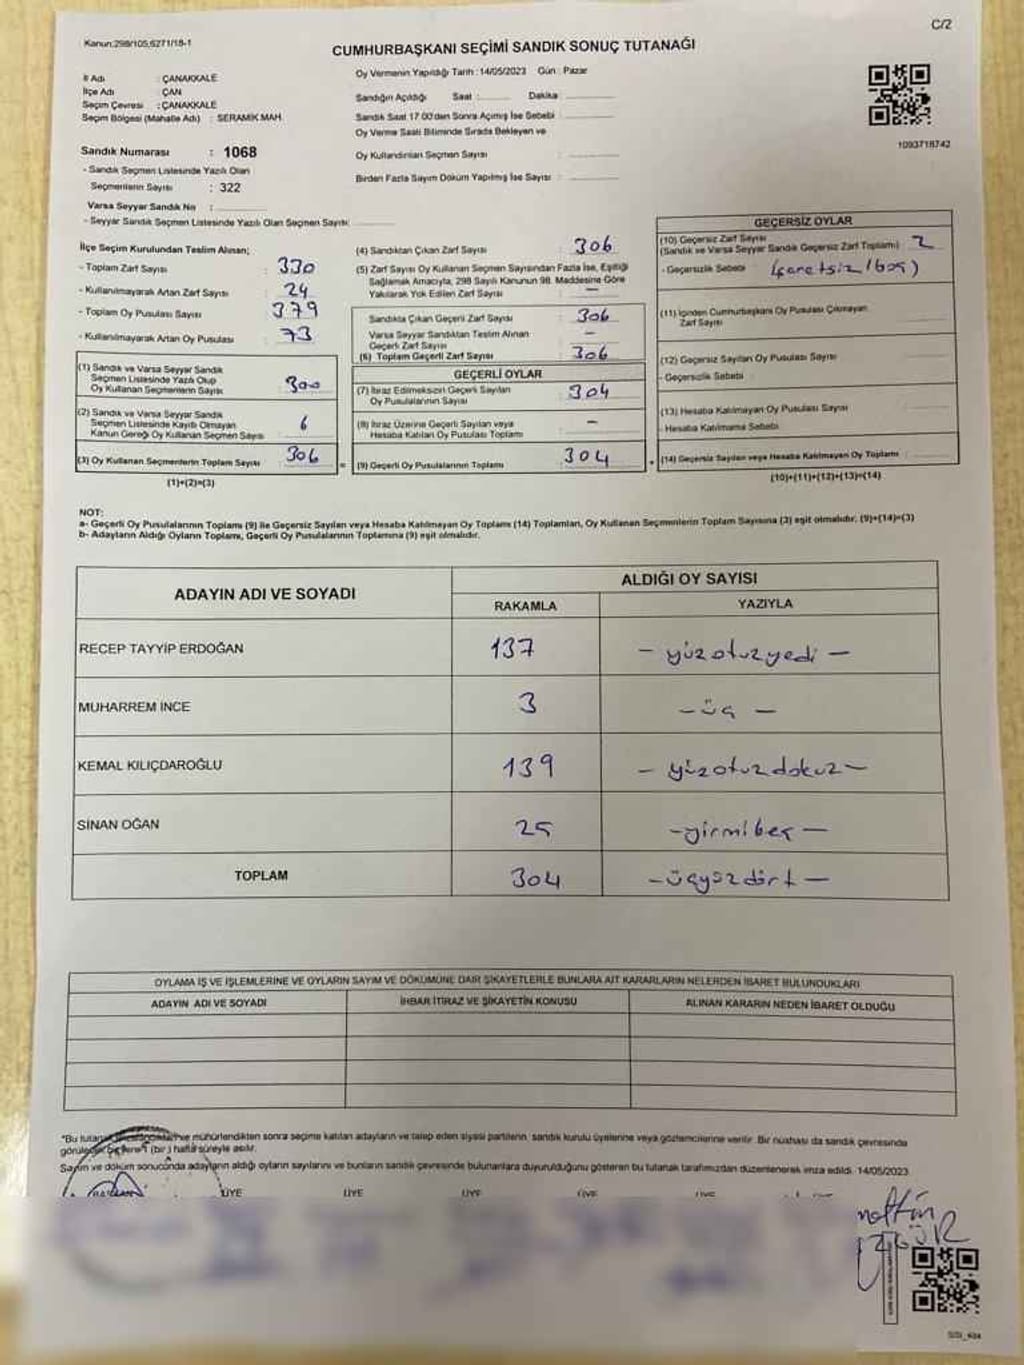 C/2
Kanun:298/105,6271/18-1
CUMHURBAŞKANI SEÇİMİ SANDIK SONUÇ TUTANAĞI
İl Adı : ÇANAKKALE
İlçe Adı : ÇAN
Seçim Çevresi : ÇANAKKALE
Seçim Bölgesi (Mahalle Adı) : SERAMİK MAH.
Sandık Numarası : 1068
- Sandık Seçmen Listesinde Yazılı Olan
Seçmenlerin Sayısı : 322
Varsa Seyyar Sandık No :
- Seyyar Sandık Seçmen Listesinde Yazılı Olan Seçmen Sayısı:
Oy Vermenin Yapıldığı Tarih :14/05/2023 Gün : Pazar
Sandığın Açıldığı Saat : Dakika :
Sandık Saat 17.00'den Sonra Açımış İse Sebebi :
Oy Verme Saati Bitiminde Sırada Bekleyen ve
Oy Kullandırılan Seçmen Sayısı :
Birden Fazla Sayım Döküm Yapılmış İse Sayısı :
1093718742
İlçe Seçim Kurulundan Teslim Alınan;
- Toplam Zarf Sayısı : 330
- Kullanılmayarak Artan Zarf Sayısı : 24
- Toplam Oy Pusulası Sayısı : 379
- Kullanılmayarak Artan Oy Pusulası : 73
(1) Sandık ve Varsa Seyyar Sandık
Seçmen Listesinde Yazılı Olup
Oy Kullanan Seçmenlerin Sayısı : 300
(2) Sandık ve Varsa Seyyar Sandık
Seçmen Listesinde Kayıtlı Olmayan
Kanun Gereği Oy Kullanan Seçmen Sayısı : 6
(3) Oy Kullanan Seçmenlerin Toplam Sayısı : 306
(1)+(2)=(3)
(4) Sandıktan Çıkan Zarf Sayısı : 306
(5) Zarf Sayısı Oy Kullanan Seçmen Sayısından Fazla İse, Eşitliği
Sağlamak Amacıyla, 298 Sayılı Kanunun 98. Maddesine Göre
Yakılarak Yok Edilen Zarf Sayısı : —
Sandıkta Çıkan Geçerli Zarf Sayısı : 306
Varsa Seyyar Sandıktan Teslim Alınan
Geçerli Zarf Sayısı : —
(6) Toplam Geçerli Zarf Sayısı : 306
GEÇERLİ OYLAR
(7) İtiraz Edilmeksizin Geçerli Sayılan
Oy Pusulalarının Sayısı : 304
(8) İtiraz Üzerine Geçerli Sayılan veya
Hesaba Katılan Oy Pusulası Toplamı : —
= (9) Geçerli Oy Pusulalarının Toplamı : 304
GEÇERSİZ OYLAR
(10) Geçersiz Zarf Sayısı
(Sandık ve Varsa Seyyar Sandık Geçersiz Zarf Toplamı) : 2
- Geçersizlik Sebebi : (işaretsiz/boş)
(11) İçinden Cumhurbaşkanı Oy Pusulası Çıkmayan
Zarf Sayısı
(12) Geçersiz Sayılan Oy Pusulası Sayısı :
- Geçersizlik Sebebi :
(13) Hesaba Katılmayan Oy Pusulası Sayısı :
- Hesaba Katılmama Sebebi :
+ (14) Geçersiz Sayılan veya Hesaba Katılmayan Oy Toplamı :
(10)+(11)+(12)+(13)=(14)
NOT:
a- Geçerli Oy Pusulalarının Toplamı (9) ile Geçersiz Sayılan veya Hesaba Katılmayan Oy Toplamı (14) Toplamları, Oy Kullanan Seçmenlerin Toplam Sayısına (3) eşit olmalıdır. (9)+(14)=(3)
b- Adayların Aldığı Oyların Toplamı, Geçerli Oy Pusulalarının Toplamına (9) eşit olmalıdır.
ADAYIN ADI VE SOYADI
ALDIĞI OY SAYISI
RAKAMLA YAZIYLA
RECEP TAYYİP ERDOĞAN 137 — yüzotuzyedi —
MUHARREM İNCE 3 — üç —
KEMAL KILIÇDAROĞLU 139 — yüzotuzdokuz —
SİNAN OĞAN 25 — yirmibeş —
TOPLAM 304 — üçyüzdört —
OYLAMA İŞ VE İŞLEMLERİNE VE OYLARIN SAYIM VE DÖKÜMÜNE DAİR ŞİKAYETLERLE BUNLARA AİT KARARLARIN NELERDEN İBARET BULUNDUKLARI
ADAYIN ADI VE SOYADI İHBAR İTİRAZ VE ŞİKAYETİN KONUSU ALINAN KARARIN NEDEN İBARET OLDUĞU
*Bu mühürlendikten sonra seçime katılan adayların ve talep eden siyasi partilerin sandık kurulu üyelerine veya gözlemcilerine verilir. Bir nüshası da sandık çevresinde
1 (bir) hafta süreyle asılır.
Sayım ve döküm sonucunda adayların aldığı oyların sayılarını ve bunların sandık çevresinde bulunanlara duyurulduğunu gösteren bu tutanak tarafımızdan düzenlenerek imza edildi. 14/05/2023
BAŞKAN ÜYE ÜYE ÜYE ÜYE ÜYE